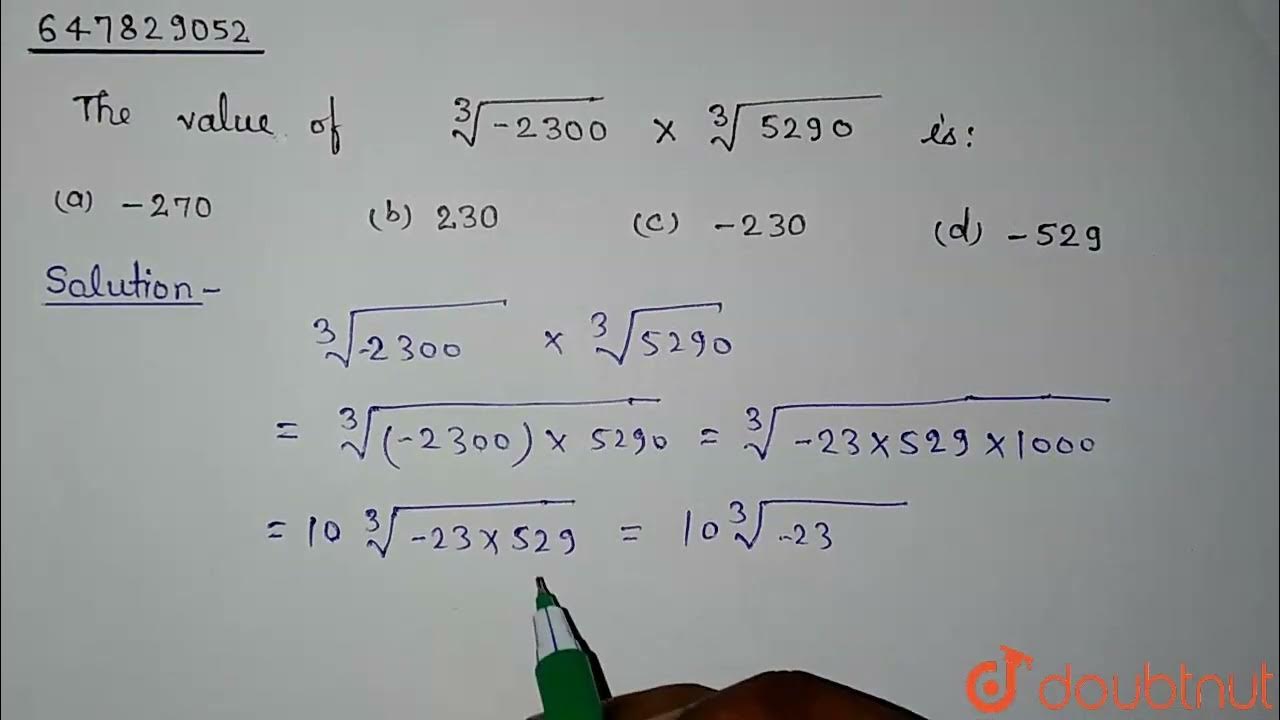 647829052
The value of ∛-2300 × ∛5290 is:
(a) -270 (b) 230 (c) -230 (d) -529
Solution-
∛-2300 × ∛5290
= ∛(-2300) × 5290 = ∛-23×529×1000
= 10 ∛-23×529 = 10 ∛-23
doubtnut